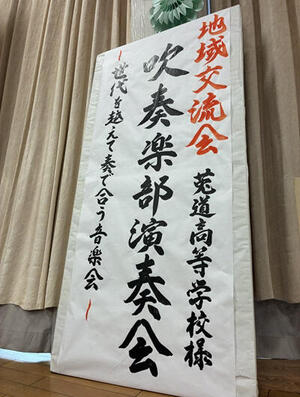 地域交流会
莵道高等学校様
吹奏楽部演奏会
世代を越えて奏で合う音楽会